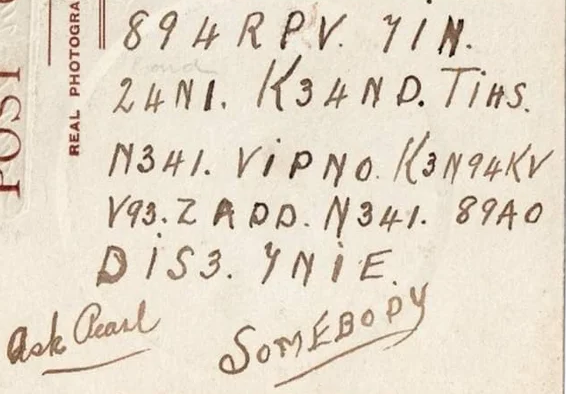 POST
REAL PHOTOGRA
894RPV. 71N.
24N1. K34ND. TiHS.
N341. ViPNO. K3N94KV
V93.ZADD. N341. 89AO
DIS3. YNiE.
Ask Pearl
SOMEBODY